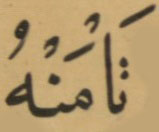 تَاْمَنْهُ